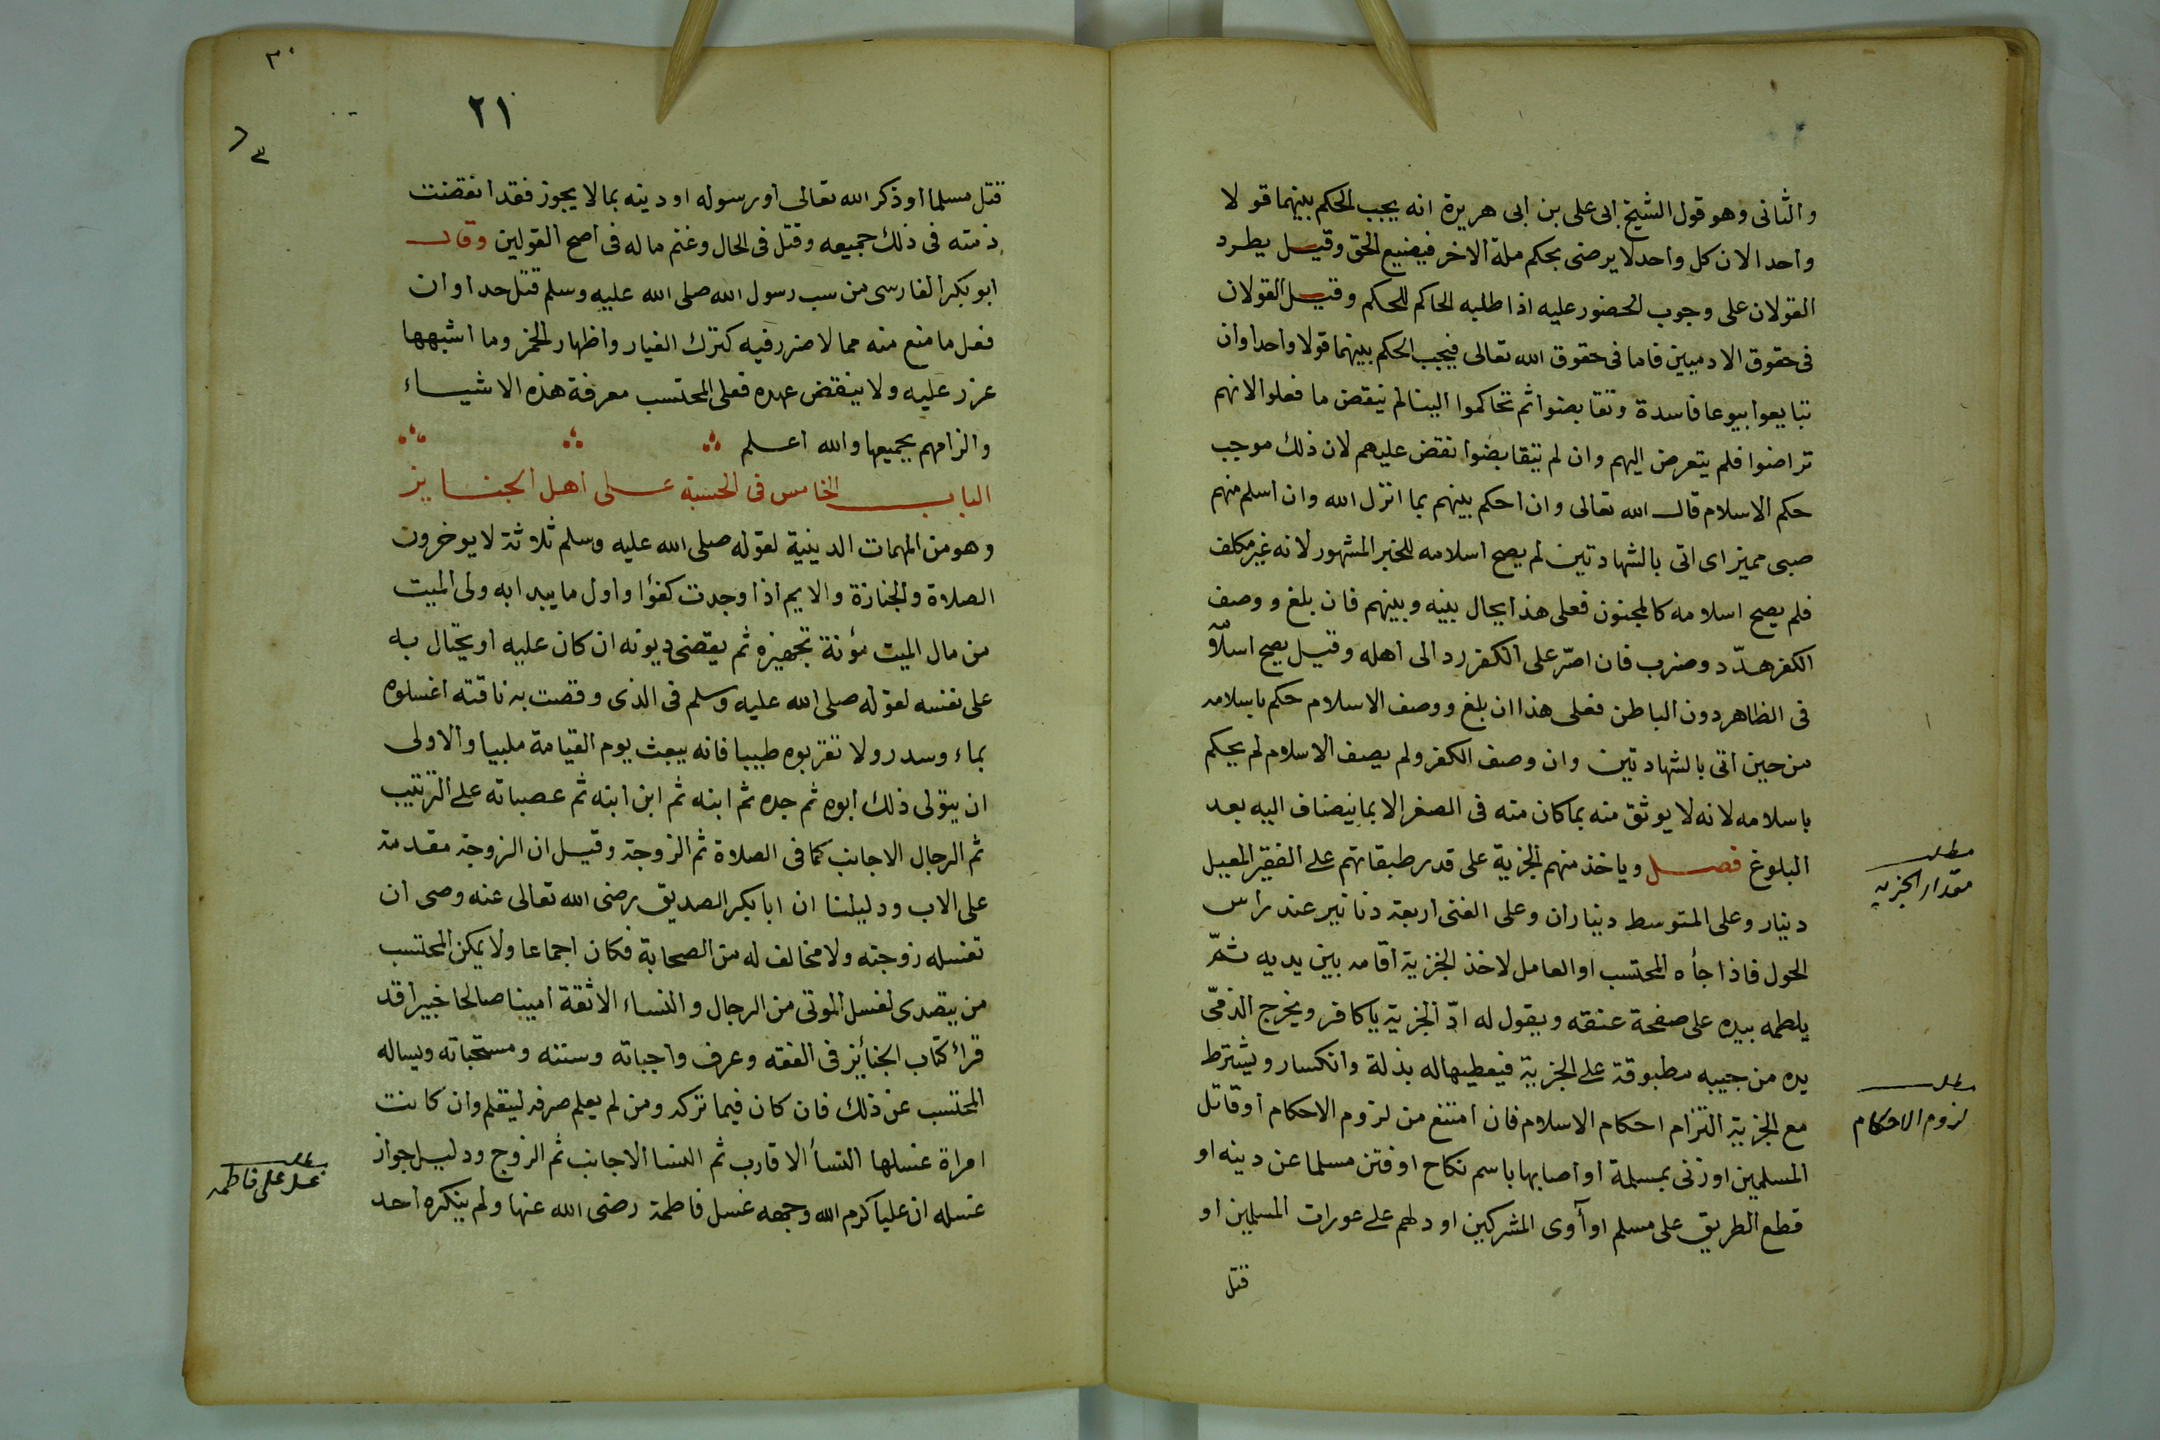 والثانى وهو قول الشيخ ابى على بن ابى هريرة انه يجب الحكم بينهما قولا
واحدا لان كل واحد لا يرضى بحكم ملة الاخر فيضيع الحق وقيل يطرد
القولان على وجوب الحضور عليه اذا طلبه الحاكم للحكم وقيل القولان
فى حقوق الادميين فاما فى حقوق الله تعالى فيجب الحكم بينهما قولا واحدا وان
تبايعوا بيوعا فاسدة وتقابضوا ثم تحاكموا الينا لم ينقض ما فعلوا لانهم
تراضوا فلم يتعرض اليهم وان لم يتقابضوا نقض عليهم لان ذلك موجب
حكم الاسلام قال الله تعالى وان احكم بينهم بما انزل الله وان اسلم منهم
صبى مميز اى اتى بالشهادتين لم يصح اسلامه للخبر المشهور لانه غير مكلف
فلم يصح اسلامه كالمجنون فعلى هذا يحال بينه وبينهم فان بلغ ووصف
الكفر هدّد وضرب فان اصرّ على الكفر رد الى اهله وقيل يصح اسلامه
فى الظاهر دون الباطن فعلى هذا ان بلغ ووصف الاسلام حكم باسلامه
من حين اتى بالشهادتين وان وصف الكفر ولم يصف الاسلام لم يحكم
باسلامه لانه لا يوثق منه بما كان منه فى الصغر الا بما ينضاف اليه بعد
البلوغ فصل وياخذ منهم الجزية على قدر طبقاتهم على الفقير المعيل
دينار وعلى المتوسط ديناران وعلى الغنى اربعة دنانير عند راس
الحول فاذا جأه المحتسب او العامل لاخذ الجزية اقامه بين يديه ثمّ
يلطمه بيده على صفحة عنقه ويقول له ادّ الجزية يا كافر ويخرج الذمّى
يده من جيبه مطبوقة على الجزية فيعطيها له بذلة وانكسار ويشترط
مع الجزية التزام احكام الاسلام فان امتنع من لزوم الاحكام او قاتل
المسلمين او زنى بمسلمة او اصابها باسم نكاح او فتن مسلما عن دينه او
قطع الطريق على مسلم او آوى المشركين او دلهم على عورات المسلمين او
قتل
مطلب
مقدار الجزيه
مطلب
لزوم الاحكام
٣٠
٢١
قتل مسلما او ذكر الله تعالى او رسوله او دينه بما لا يجوز فقد انقضت
ذمته فى ذلك جميعه وقتل فى الحال وغنم ماله فى اصح القولين وقال
ابو بكر الفارسى من سب رسول الله صلى الله عليه وسلم قتل حدا وان
فعل ما منع منه مما لا ضرر فيه كترك الغيار واظهار الخمر وما اشبهها
عزر عليه ولا ينقض عهده فعلى المحتسب معرفة هذه الاشياء
والزامهم بجميعها والله اعلم
الباب الخامس فى الحسبة على اهل الجنايز
وهو من المهمات الدينية لقوله صلى الله عليه وسلم ثلاثة لا يوخرون
الصلاة والجنازة والايم اذا وجدت كفؤا واول ما يبدا به ولى الميت
من مال الميت مؤنة تجهيزه ثم يقضى ديونه ان كان عليه او يحتال به
على نفسه لقوله صلى الله عليه وسلم فى الذى وقصت به ناقته اغسلوه
بماء وسدر ولا تقربوه طيبا فانه يبعث يوم القيامة ملبيا والاولى
ان يتولى ذلك ابوه ثم جده ثم ابنه ثم ابن ابنه ثم عصباته على الترتيب
ثم الرجال الاجانب كما فى الصلاة ثم الزوجة وقيل ان الزوجة مقدمة
على الاب ودليلنا ان ابا بكر الصديق رضى الله تعالى عنه وصى ان
تغسله زوجته ولا مخالف له من الصحابة فكان اجماعا ولا يمكن المحتسب
من يتصدى لغسل الموتى من الرجال والنساء الا ثقة امينا صالحا خبيرا قد
قرأ كتاب الجنائز فى الفقه وعرف واجباته وسننه ومستحباته ويساله
المحتسب عن ذلك فان كان فيما تركه ومن لم يعلم صرفه ليتعلم وان كانت
امراة غسلها النسأ الاقارب ثم النسا الاجانب ثم الزوج ودليل جواز
غسله ان عليا كرم الله وجهه غسل فاطمة رضى الله عنها ولم ينكره احد
مطلب
غسل على فاطمه